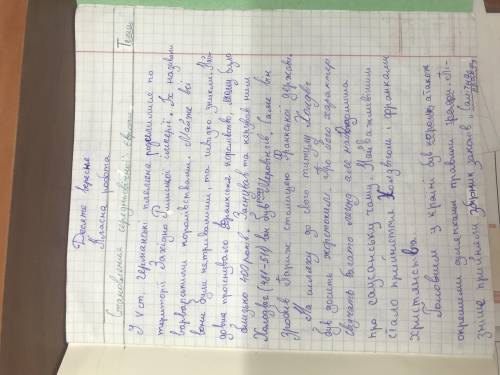 Десяте вересня
Класна робота
Становлення середньовічної Європи Тема
У V ст. германські племена розселилися по
території Західної Римської імперії. Їх називали
варварськими королівствами. Майже всі
вони були нетривалими, та швидко зникли. Най-
довше проіснувало Франкське королівство, йому було
близько 400 років. Заснував та керував ним
Хлодвіг (481-511) він був з роду Меровінгів. Саме він
зробив Париж столицею Франкської держави.
На шляху до свого титулу Хлодвіг
був досить жорстоким. Про його характер
свідчать багато легенд, але найвідоміша
про суассонську чашу. Найважливішим
стало прийняття Хлодвігом і франками
Християнства.
Головним у країні був король, а також
окремими ділянками правили графи. Пі-
зніше прийняли збірник законів „Салічна